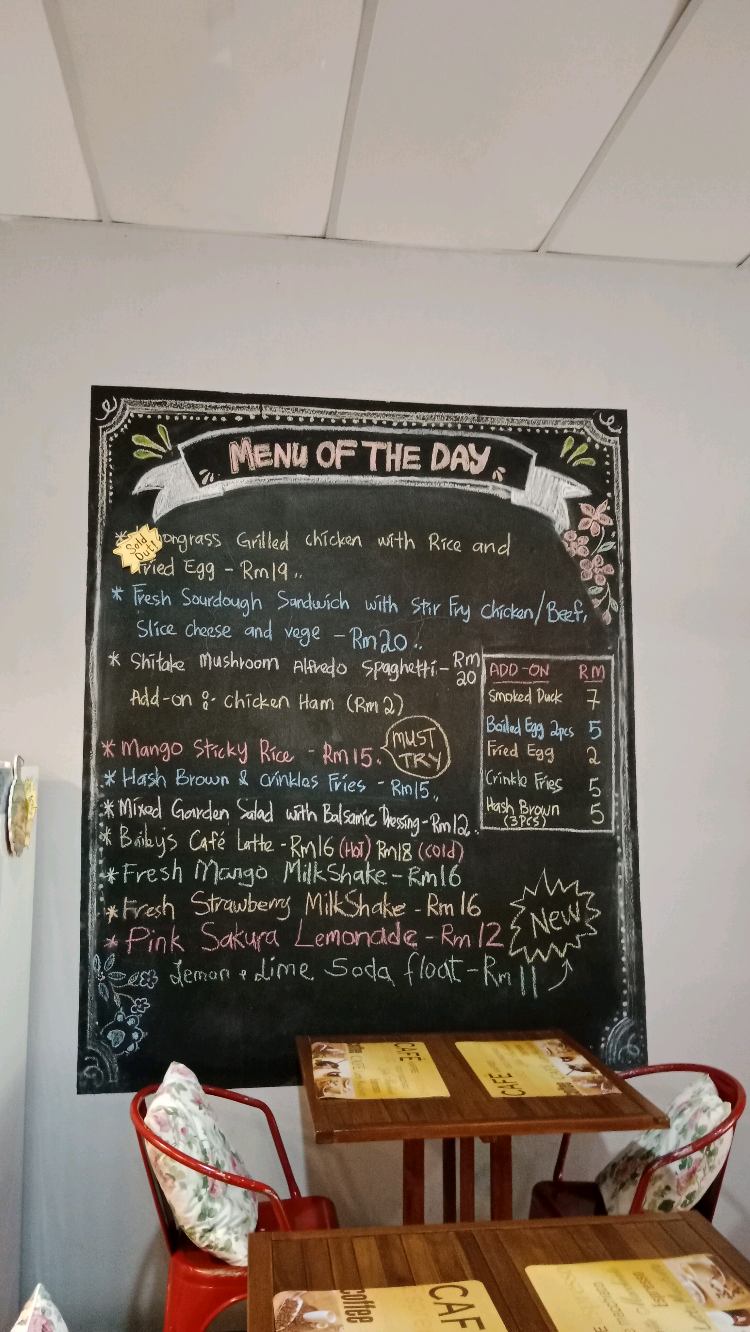 MENU OF THE DAY
* ongrass Grilled chicken with Rice and
Sold
Out!
Fried Egg - Rm19..
* Fresh Sourdough Sandwich with Stir Fry chicken/Beef,
Slice cheese and vege - Rm20..
* Shitake Mushroom Alfredo Spaghetti - Rm
20
Add-on : chicken Ham (Rm2)
* Mango Sticky Rice - Rm15.
MUST
TRY
* Hash Brown & Crinkles Fries - Rm15..
* Mixed Garden Salad with Balsamic Dressing - Rm12.
* Café Latte - Rm16 (Hot) Rm18 (cold)
* Fresh Mango MilkShake - Rm16
* Fresh Strawberry MilkShake - Rm16
* Pink Sakura Lemonade - Rm12
New
Lemon + Lime Soda float - Rm11
ADD-ON RM
Smoked Duck 7
Boiled Egg 2pcs 5
Fried Egg 2
Crinkle Fries 5
Hash Brown 5
(3PCS)
CAFÉ
CAFÉ
coffee
CAF